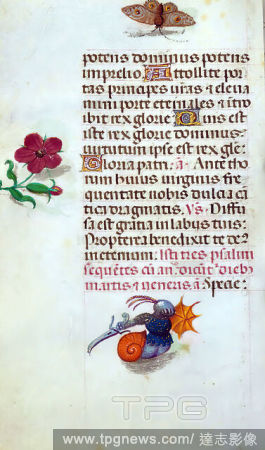 potens dominus potens
in prelio. Attollite por
tas principes vestras et eleva
mini porte eternales et intro
ibit rex glorie. Quis est
iste rex glorie dominus
virtutum ipse est rex glorie
Gloria patri. a. Ante tho
rum huius virginis fre
quentate nobis dulcia can
tica dragmatis. Vs. Diffu
sa est gratia in labijs tuis:
Propterea benedixit te deus
in eternum.
TPG
www.tpgnews.com / 達志影像